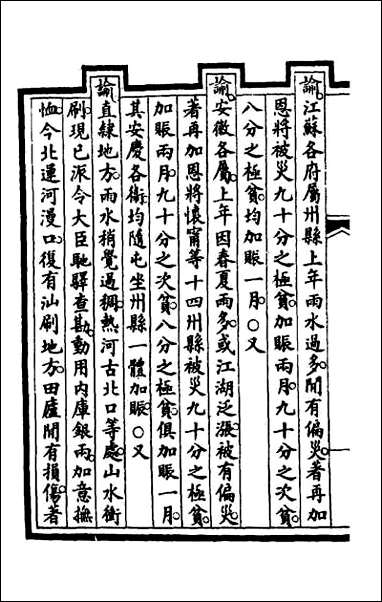 諭江蘇各府屬州縣上年雨水過多間有偏災著再加
恩將被災九十分之極貧加賑兩月九十分之次貧
八分之極貧均加賑一月〇又
諭安徽各屬上年因春夏雨多或江湖泛漲被有偏災
著再加恩將懷甯等十四州縣被災九十分之極貧
加賑兩月九十分之次貧八分之極貧俱加賑一月
其安慶各衛均隨屯坐州縣一體加賑〇又
諭直隸地方雨水稍覺過稠熱河古北口等處山水衝
刷現已派令大臣馳驛查勘動用內庫銀兩加意撫
恤今北運河漫口復有汕刷地方田廬間有損傷著